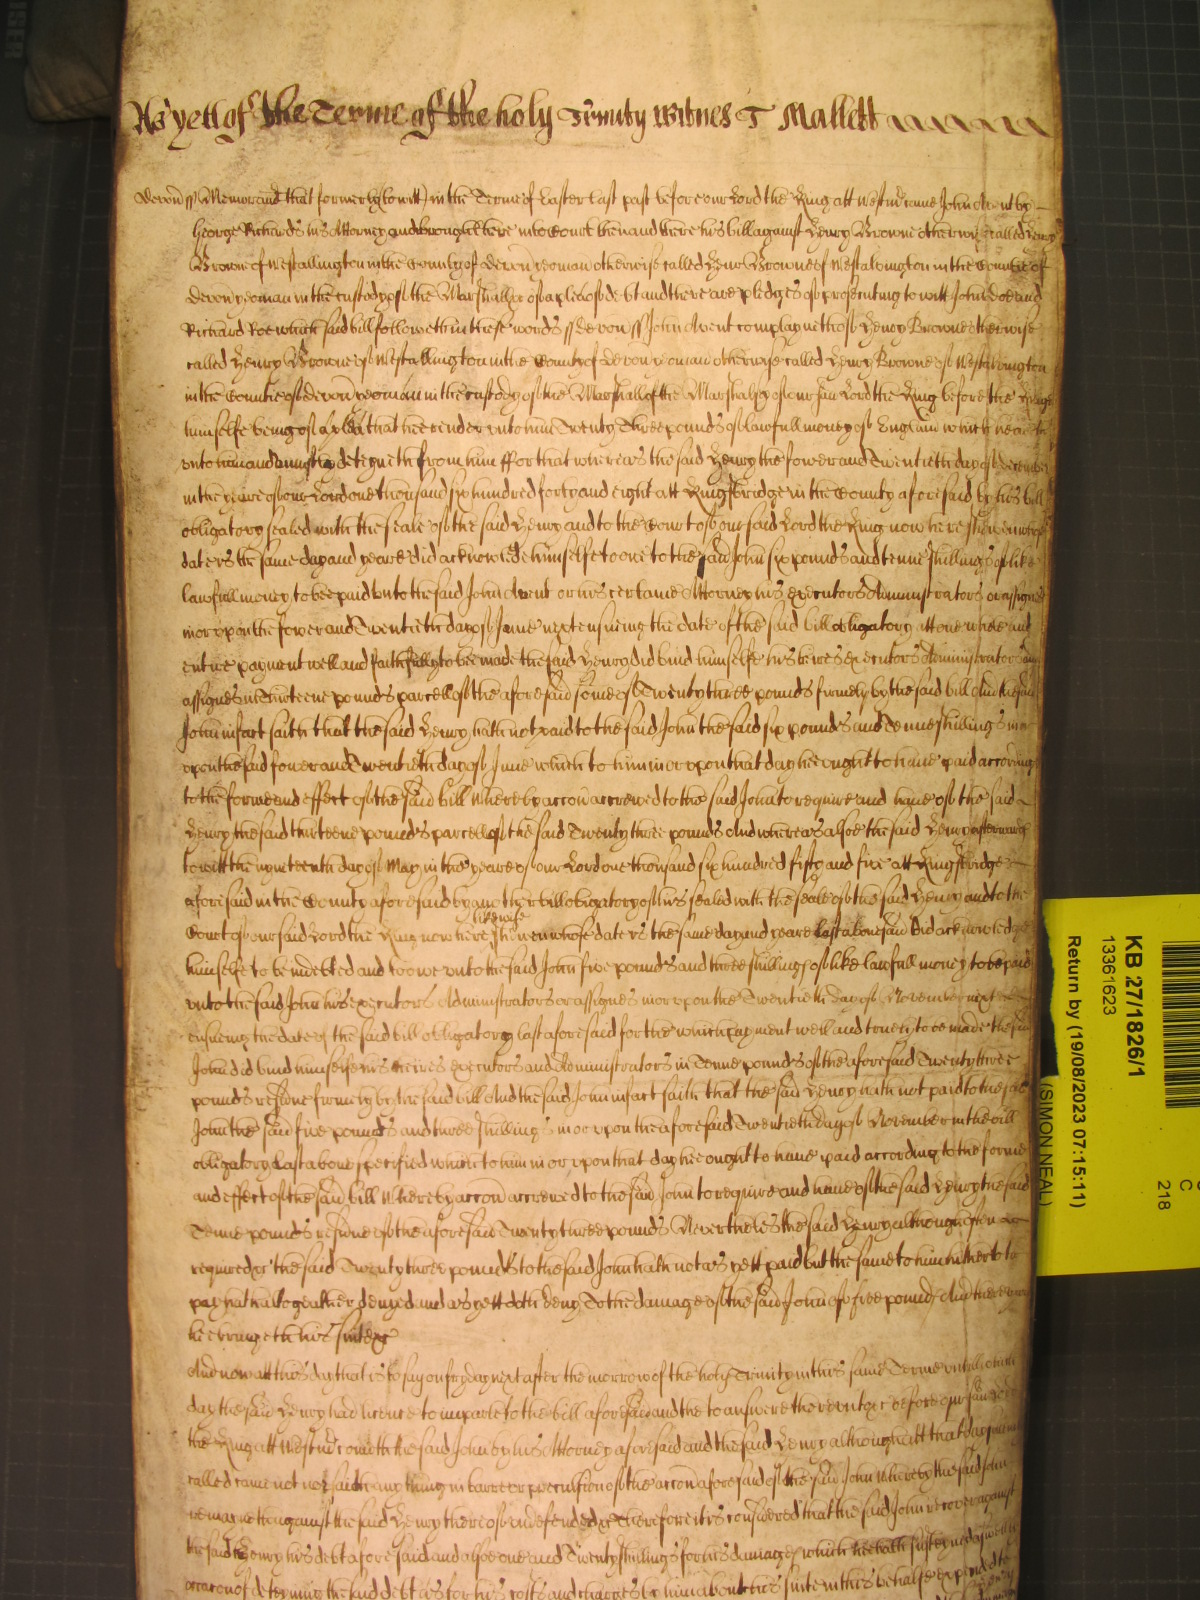 As yett of the Terme of the holy Trinity Witnes T Mallett
Devon ss Memorand that formerly (to witt) in the Terme of Easter last past before our Lord the King att Westm came John Avent by
George Richards his Attorney and brought here into Court then and there his bill against Henry Browne otherwise called Henry
Browne of Westallington in the County of Devon yeoman otherwise called Henry Browne of Westalvington in the Countie of
Devon yeoman in the custody of the Marshall &c of a plea of debt and there are pledges of prosecuting to witt John Doe and
Richard Roe which said bill followeth in these words ss Devon ss John Avent complayneth of Henry Browne otherwise
called Henry Browne of Westallington in the County of Devon yeoman otherwise called Henry Browne of Westalvington
in the Countie of Devon yeoman in the custody of the Marshall of the Marshalsey of our said Lord the King before the King
himselfe being of a plea that hee render unto him Twenty Three pounds of lawfull money of England which hee
unto him and uniustly deteyneth from him ffor that whereas the said Henry the fower and Twentieth day of December
in the yeare of our Lord one thousand six hundred forty and eight att Kingsbridge in the County aforesaid by his bill
obligatory sealed with the seale of the said Henry and to the Court of our said Lord the King now here shewen whose
date is the same day and yeare did acknowledge himselfe to owe to the said John six pounds and tenne shillings of like
lawfull money to bee paid unto the said John Avent or his certaine Attorney his executors Administrators or assignes
in or upon the fower and Twentieth day of June next ensueing the date of the said bill obligatory att one whole and
entire payment well and faithfully to bee made the said Henry did bind himselfe his heires executors Administrators and
assignes in thirteene pounds parcell of the aforesaid some of Twenty three pounds firmely by the said bill And the said
John in fact saith that the said Henry hath not paid to the said John the said six pounds and Tenne shillings in or
upon the said fower and Twentieth day of June which to him in or upon that day hee ought to have paid according
to the forme and effect of the said bill Whereby accon accrewed to the said John to require and have of the said
Henry the said thirteene pounds parcell of the said Twenty three pounds And whereas alsoe the said Henry afterwards
to witt the nyneteenth day of May in the yeare of our Lord one thousand six hundred fifty and five att Kingsbridge
aforesaid in the County aforesaid by another bill obligatory of his sealed with the seale of the said Henry and to the
likewise
Court of our said Lord the King now here shewen whose date is the same day and yeare last abovesaid did acknowledge
himselfe to be indebted and to owe unto the said John five pounds and three shillings of like lawfull money to be paid
unto the said John his executors Administrators or assignes in or upon the Twentieth day of November next
ensueing the date of the said bill obligatory last aforesaid for the which payment well and truely to be made the said
John did bind himselfe his heires executors and Administrators in Tenne pounds of the aforesaid Twenty three
pounds residue firmely by the said bill And the said John in fact saith that the said Henry hath not paid to the said
John the said five pounds and three shillings in or upon the aforesaid Twentieth day of November in the bill
obligatory last above specified which to him in or upon that day hee ought to have paid according to the forme
and effect of the said bill Whereby accon accrewed to the said John to require and have of the said Henry the said
Tenne pounds residue of the aforesaid Twenty three pounds Neverthelesse the said Henry although often
required &c the said Twenty three pounds to the said John hath not as yett paid but the same to him hitherto to
pay hath altogeather denyed and as yett doth deny To the damage of the said John of five pounds And thereupon
hee bringeth his suite &c
And now att this day that is to say on fryday next after the morrow of the holy Trinity in this same Terme untill which
day the said Henry had licence to imparle to the bill aforesaid and then to answere thereunto &c before our said Lord
the King att Westm cometh the said John by his Attorney aforesaid and the said Henry although att that day
called came not nor saith any thing in barre or preclusion of the accon aforesaid of the said John Whereby the said John
remayneth against the said Henry thereof undefended &c Therefore itt is considered that the said John recover against
the said Henry his debt aforesaid and alsoe one and Twenty shillings for his damages which hee hath susteyned aswell by
occacon of deteyning the said debt as for his costs and charges by him about his suite in this behalfe expended to
KB 27/1826/1
13361623
Return by (19/08/2023 07:15:11)
(SIMON NEAL)
C
218